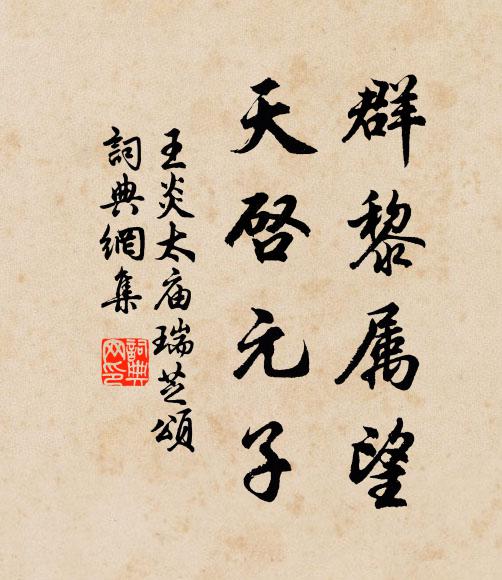 群黎属望
天启元子
王炎太庙瑞芝頌
詞典網集
詞典网印